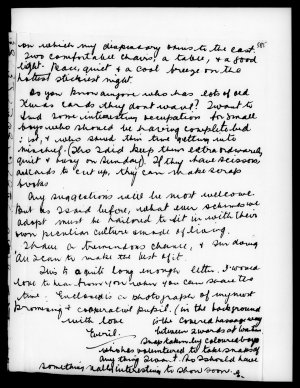 on which my dispensary opens to the east.
Two comfortable chairs, a table, & a good
light. Peace, quiet & a cool breeze on the
hottest stickiest night.
Do you know anyone who has lots of old
Xmas cards they don't want? I want to
find some interesting occupation for small
boys who should be having completed
, & who spend this time getting into
mischief. (This did keep them extraordinarily
quiet & busy on Sunday). If they have scissors,
cards to cut up, they can make scrap
books
Any suggestions will be most welcome.
But as I said before, what ever schemes we
adopt must be tailored to fit in with their
own peculiar culture & mode of living.
I have a tremendous chance, & I'm doing
all I can to make the best of it.
This is quite long enough letter. I would
love to hear from you when you can spare the
time. Enclosed is a photograph of my most
promising & cooperative pupil. (in the background
with love is the covered passage way
between 2 wards at
Snap taken by coloured boys
who has volunteered to take
any thing I want. So I should have
something really interesting to show soon.